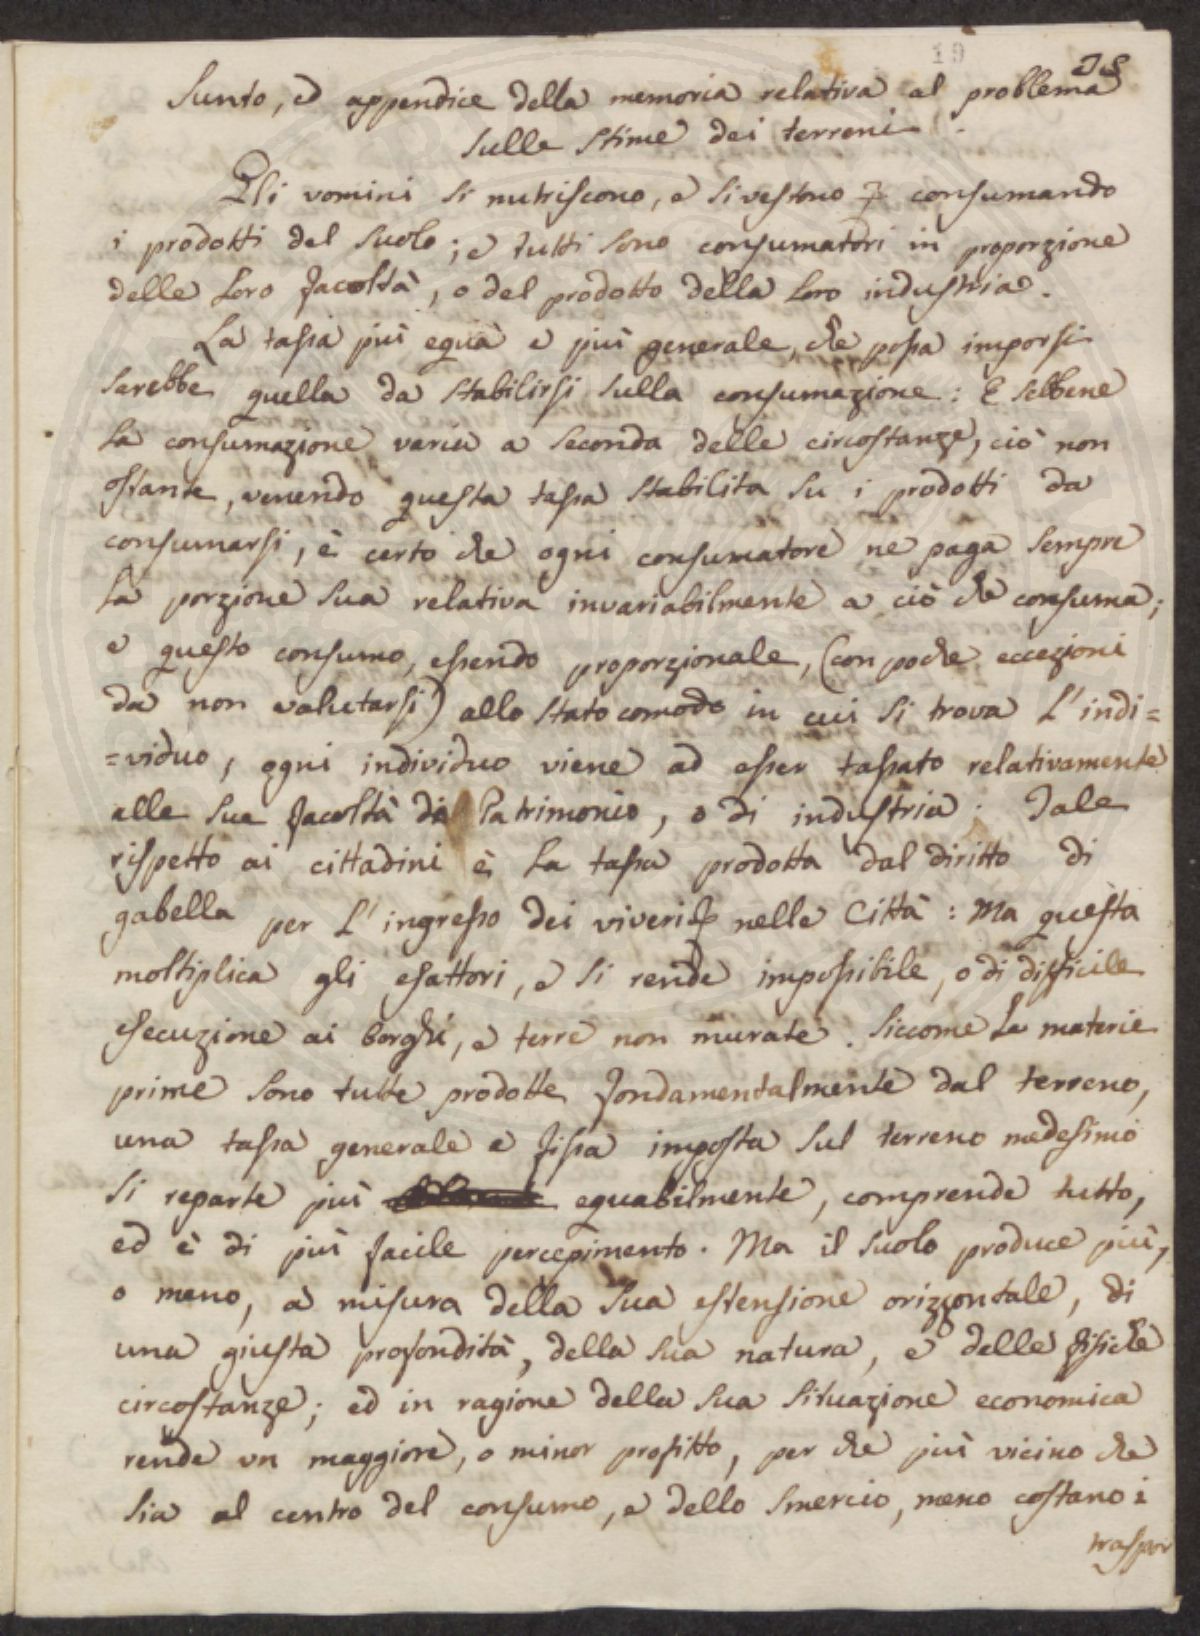 19
Sunto, ed appendice della memoria relativa al problema
sulle stime dei terreni.
Gli vomini si nutriscono, e si vestono consumando
i prodotti del suolo; e tutti sono consumatori in proporzione
delle loro facoltà, o del prodotto della loro industria.
La tassa più equa e più generale, che possa imporsi
sarebbe quella da stabilirsi sulla consumazione: E sebbene
la consumazione varia a seconda delle circostanze, ciò non
ostante, venendo questa tassa stabilita su i prodotti da
consumarsi, è certo che ogni consumatore ne paga sempre
la porzione sua relativa invariabilmente a ciò che consuma;
e questo consumo, essendo proporzionale, (con poche eccezioni
da non valutarsi) allo stato comodo in cui si trova l'indi=
=viduo, ogni individuo viene ad esser tassato relativamente
alle sue facoltà di Patrimonio, o di industria. Tale
rispetto ai cittadini è la tassa prodotta dal diritto di
gabella per l'ingresso dei viveri nelle Città: Ma questa
moltiplica gli esattori, e si rende impossibile, o di difficile
esecuzione ai borghi, e terre non murate. Siccome le materie
prime sono tutte prodotte fondamentalmente dal terreno,
una tassa generale e fissa imposta sul terreno medesimo
si reparte più equabilmente, comprende tutto,
ed è di più facile percepimento. Ma il suolo produce più,
o meno, a misura della sua estensione orizzontale, di
una giusta profondità, della sua natura, e delle fisiche
circostanze; ed in ragione della sua situazione economica
rende un maggiore, o minor profitto, per che più vicino che
sia al centro del consumo, e dello smercio, meno costano i
traspor